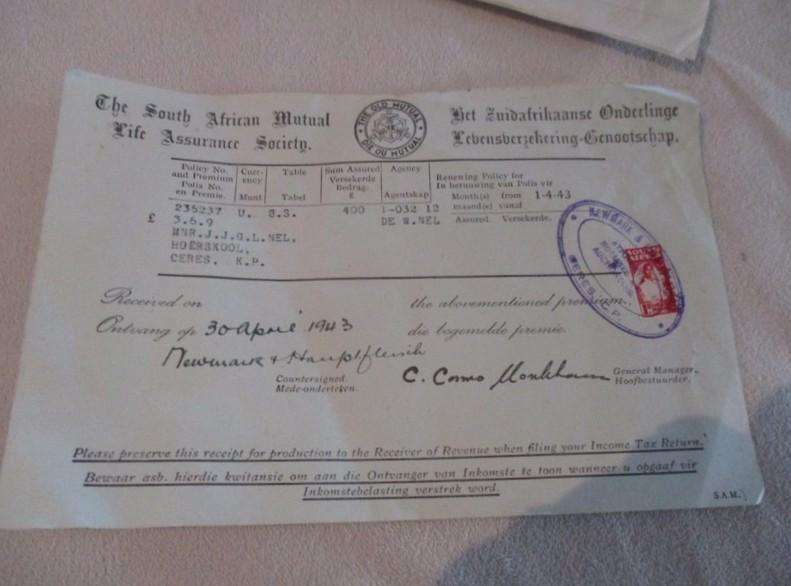 The South African Mutual
Life Assurance Society.
THE OLD MUTUAL
DIE OU MUTUAL
Het Zuidafrikaanse Onderlinge
Levensverzekering-Genootschap.
Policy No. and Premium Polis No. en Premie.
Curr-ency Munt
Table Tabel
Sum Assured Versekerde Bedrag. £
Agency Agentskap
Renewing Policy for
In hernuwing van Polis vir
Month(s) from 1-4-43
maand(e) vanaf
236237 U. S.S. 400 1-032 12
£ 3.6.9 DE W.NEL Assured. Versekerde.
MNR.J.J.G.L.NEL,
HOERSKOOL,
CERES, K.P.
NEWMARK &
CERES, C.P.
Received on the abovementioned premium.
Ontvang op 30 April 1943 die bogemelde premie.
Newmark & Hauptfleisch
Countersigned.
Mede-onderteken.
C. Como Monkhom
General Manager.
Hoofbestuurder.
Please preserve this receipt for production to the Receiver of Revenue when filing your Income Tax Return.
Bewaar asb. hierdie kwitansie om aan die Ontvanger van Inkomste te toon wanneer u opgaaf vir
Inkomstebelasting verstrek word.
S.A.M.